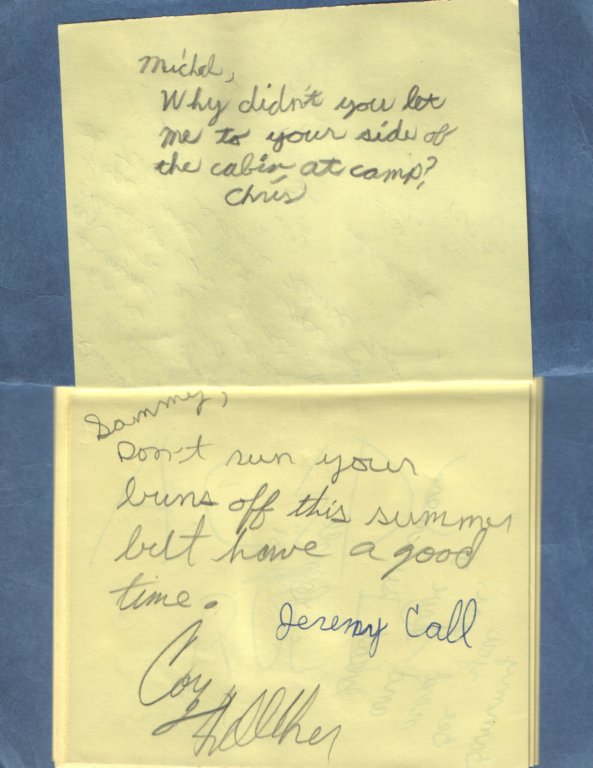 Michel,
Why didn't you let
me to your side of
the cabin at camp?
Chris
Sammy,
Don't run your
buns off this summer
but have a good
time.
Jeremy Call
Coy